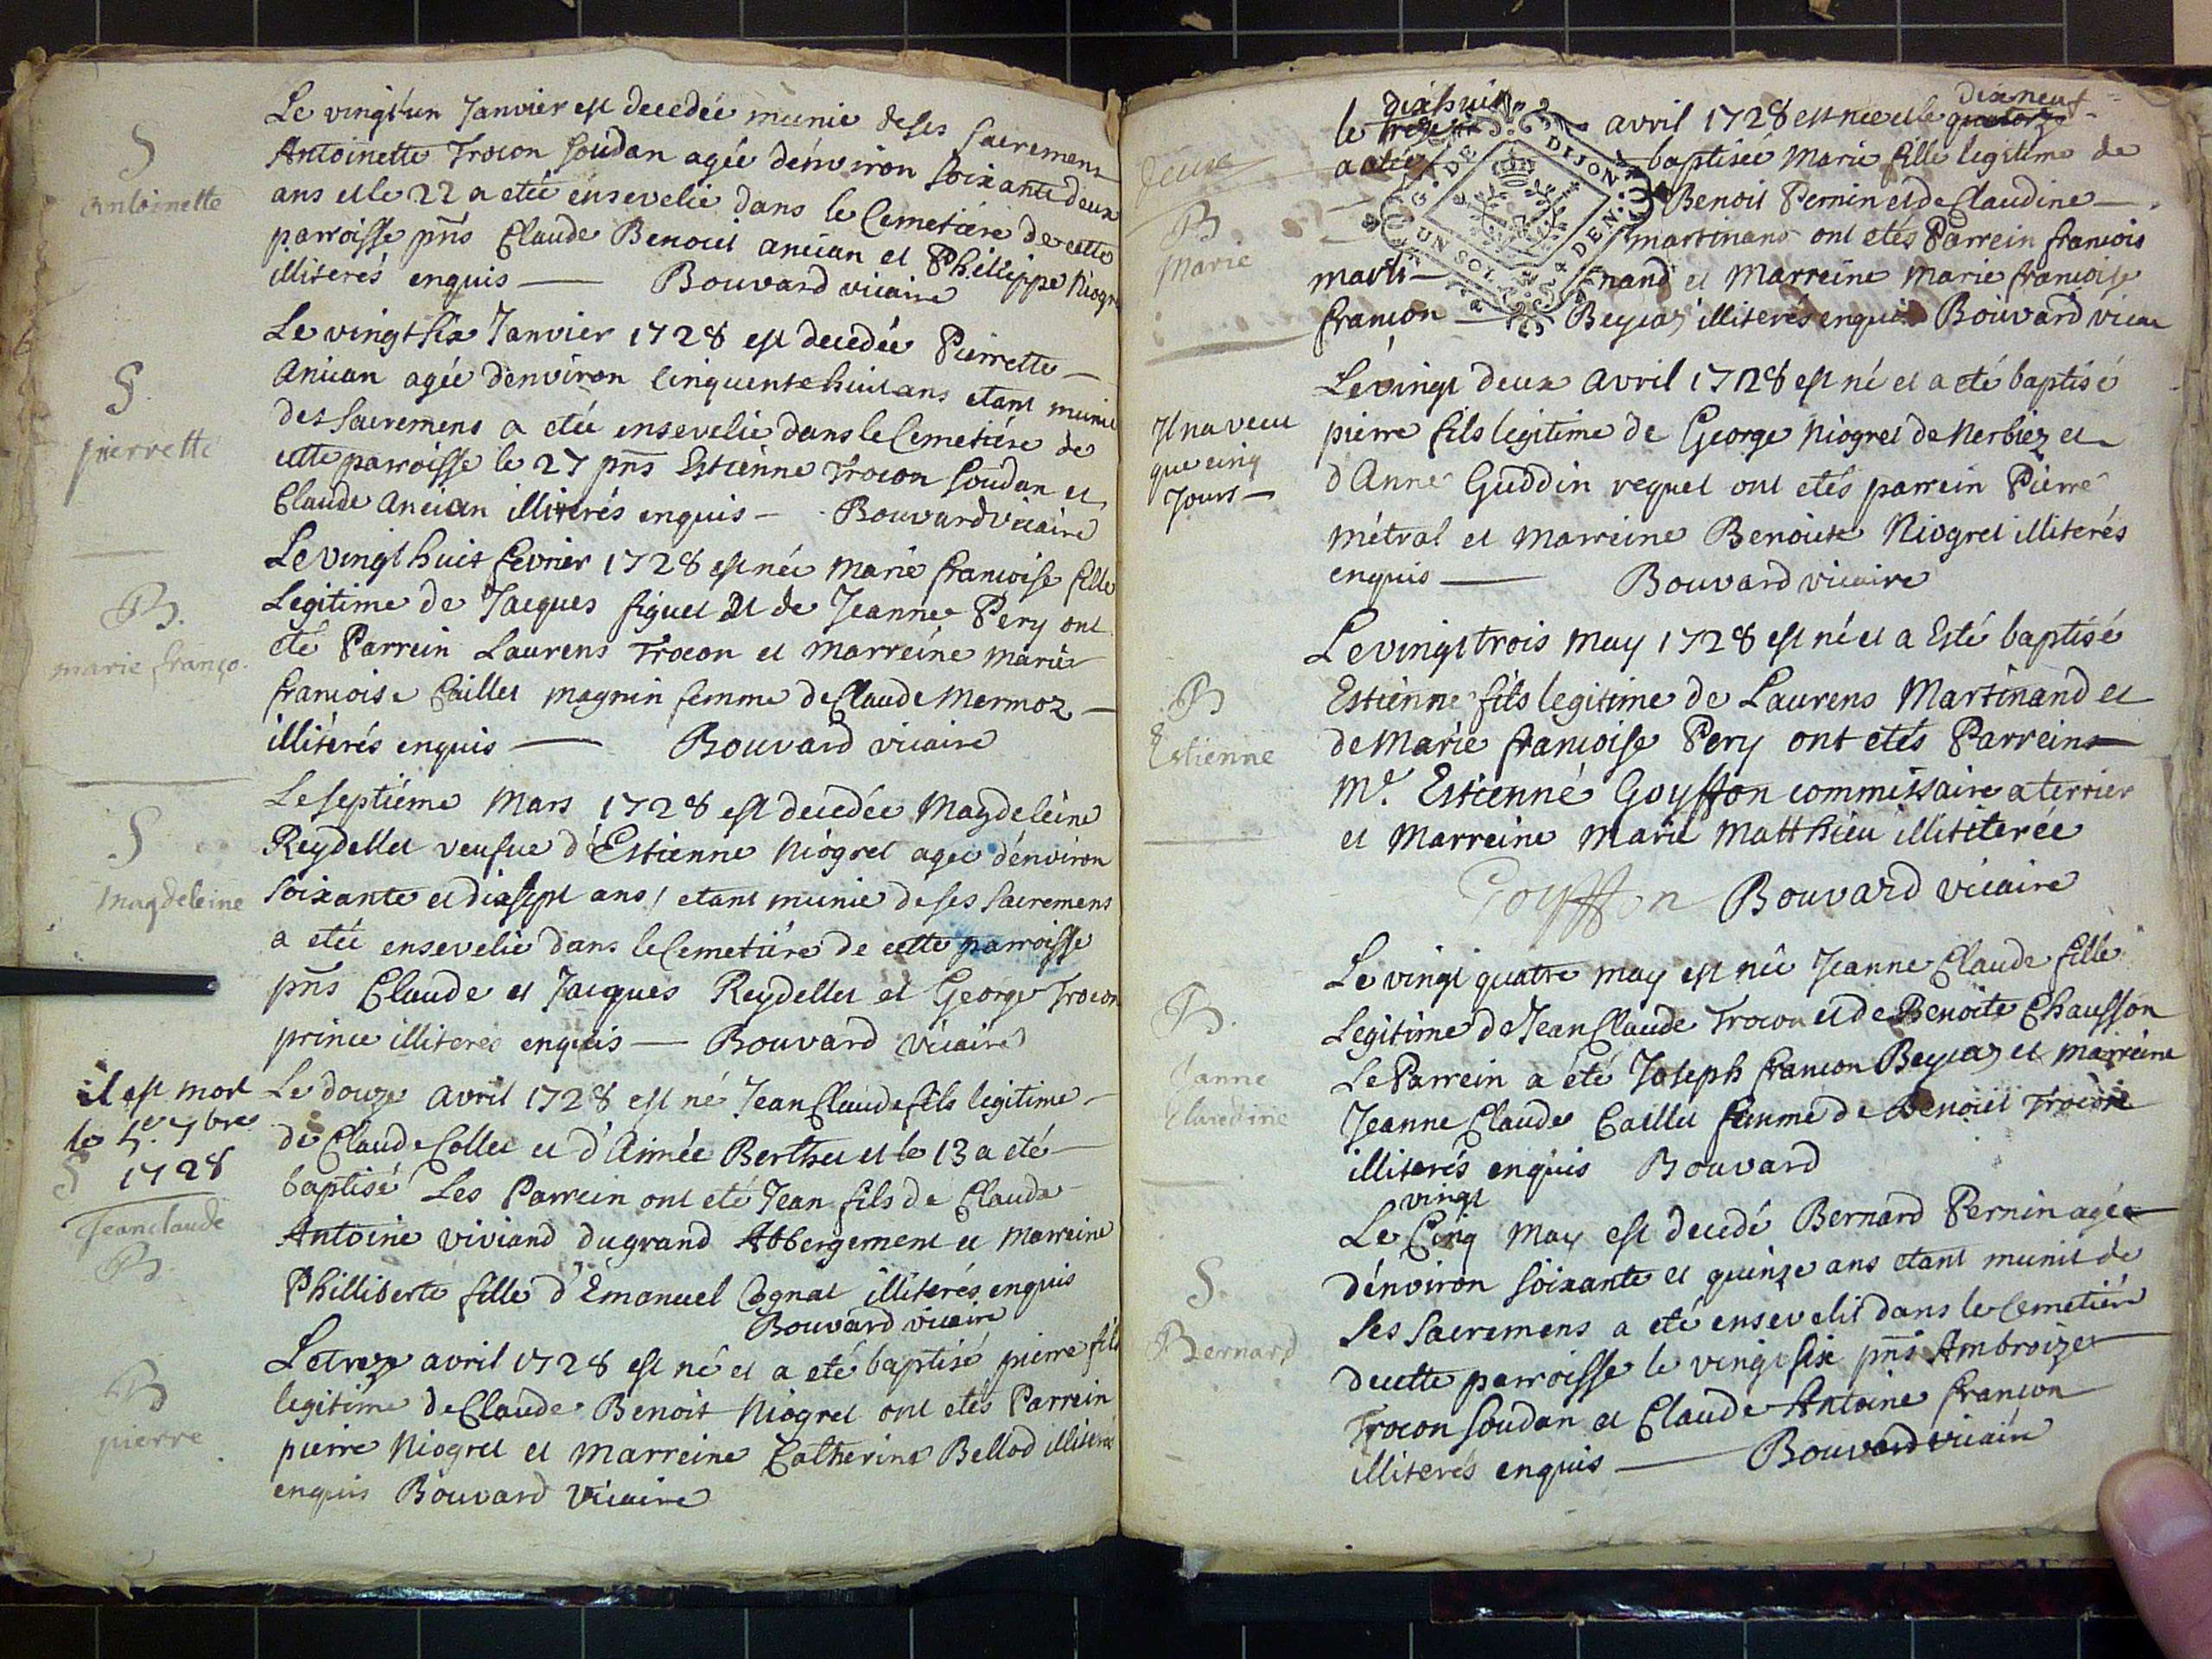 Le vingt un Janvier est decedée munie de ses Sacremens
Antoinette Trocon Soudan agée d'environ soixante deux
ans et le 22 a etée ensevelie dans le Cemetiere de cette
parroisse pñs Claude Benoit ancian et Phillippe Niogret
illiterés enquis — Bouvard vicaire
S
Antoinette
Le vingt six Janvier 1728 est decedée Pierrette —
Ancian agée d'environ cinquente huit ans etant munie
des Sacremens a etée ensevelie dans le Cemetiére de
cette parroisse le 27 pñs Estienne Trocon Soudan et
Claude ancian illiterés enquis — Bouvard vicaire
S.
pierrette
Le vingt huit fevrier 1728 est née Marie francoise fille
Legitime de Jacques figuet et de Jeanne Pery ont
eté Parrein Laurens Trocon et Marreine Marie
francoise Caillet magnin femme de Claude Mermoz —
illiterés enquis — Bouvard vicaire
B.
marie franço.
Le septiéme Mars 1728 est decedée Magdeleine
Reydellet veufue d'Estienne Niogret agee d'environ
soixante et dixsept ans / etant munie de ses Sacremens
a etée ensevelie dans le Cemetiére de cette parroisse
pñs Claude et Jacques Reydellet et George Trocon
prince illiteres enquis — Bouvard vicaire
S
Magdeleine
Le douze avril 1728 est né Jean Claude fils legitime —
de Claude Collet et d'Aimée Berthet et le 13 a eté —
baptisé Les Parrein ont eté Jean fils de Claude
Antoine viviand du grand Abbergement et Marreine
Philliberte fille d'Emanuel Cognat illiterés enquis
Bouvard vicaire
il est mort
le 5e. 7bre
S 1728
Jean claude
B.
Le treze avril 1728 est né et a eté baptisé pierre fils
legitime de Claude Benoit Niogret ont etés Parrein
pierre Niogret et Marreine Catherine Bellod illiterés
enquis Bouvard vicaire
B
pierre
dixhuit dixneuf
le treze avril 1728 est nee et le quatorze
a etée baptisée Marie fille legitime de
Benoit Pernin et de Claudine —
martinand ont etés Parrein francois
marti — nand et Marreine Marie francoise
francon — Beycaz illiterés enquis Bouvard vicai
G. DE DIJON
UN SOL 4 DEN.
B
Marie
Le vingt deux avril 1728 est né et a eté baptisé
pierre fils legitime de George Niogret de Nerbiez et
d'Anne Guddin requet ont etés parrein Pierre
Métral et Marreine Benoite Niogret illiterés
enquis — Bouvard vicaire
Il na vecu
que cinq
Jours —
Le vingt trois May 1728 est né et a Esté baptisé
Estienne fils legitime de Laurens Martinand et
de Marie francoise Pery ont etés Parreins
Me. Estienne Goyffon commissaire a terrier
et Marreine Marie Matthieu illititerée
Goyffon Bouvard vicaire
B
Estienne
Le vingt quatre may est née Jeanne Claude fille
Legitime de Jean Claude Trocon et de Benoite Chausson
Le Parrein a été Joseph francon Beycaz et Marreine
Jeanne Claude Caillet femme de Benoit Trocon
illiterés enquis Bouvard
B.
Janne
Claudine
vingt
Le Cinq May est decedé Bernard Pernin agée
d'environ soixante et quinze ans etant munit de
ses Sacremens a eté ensevelit dans le Cemetiére
de cette parroisse le vingt six pñs Ambroize
Trocon Soudan et Claude Antoine francon
illiterés enquis — Bouvard vicaire
S.
Bernard